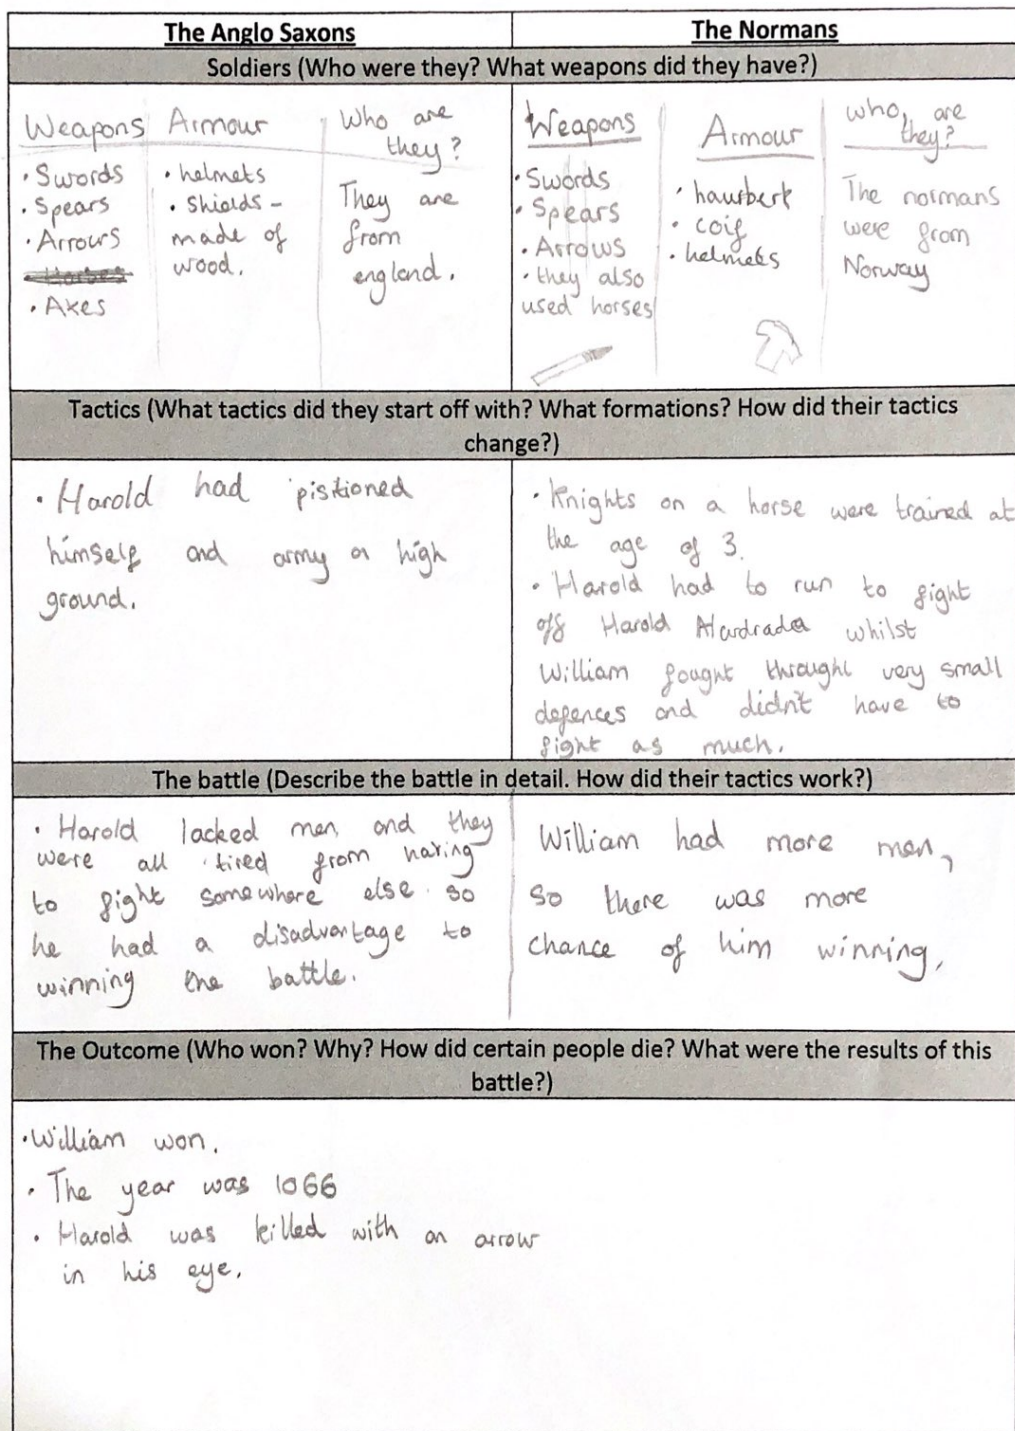 The Anglo Saxons
The Normans
Soldiers (Who were they? What weapons did they have?)
Weapons
• Swords
• Spears
• Arrows
• Axes
Armour
• helmets
• Shields -
made of
wood.
Who are
they?
They are
from
england.
Weapons
• Swords
• Spears
• Arrows
• they also
used horses
Armour
• haurbert
• coif
• helmets
who are
they?
The normans
were from
Norway
Tactics (What tactics did they start off with? What formations? How did their tactics
change?)
• Harold had pisitioned
himself and army on high
ground.
• Knights on a horse were trained at
the age of 3.
• Harold had to run to fight
off Harold Hardrada whilst
William fought throught very small
defences and didn't have to
fight as much.
The battle (Describe the battle in detail. How did their tactics work?)
• Harold lacked men, and they
were all tired from having
to fight somewhere else so
he had a disadvantage to
winning the battle.
William had more men,
so there was more
chance of him winning,
The Outcome (Who won? Why? How did certain people die? What were the results of this
battle?)
• William won.
• The year was 1066
• Harold was killed with an arrow
in his eye.